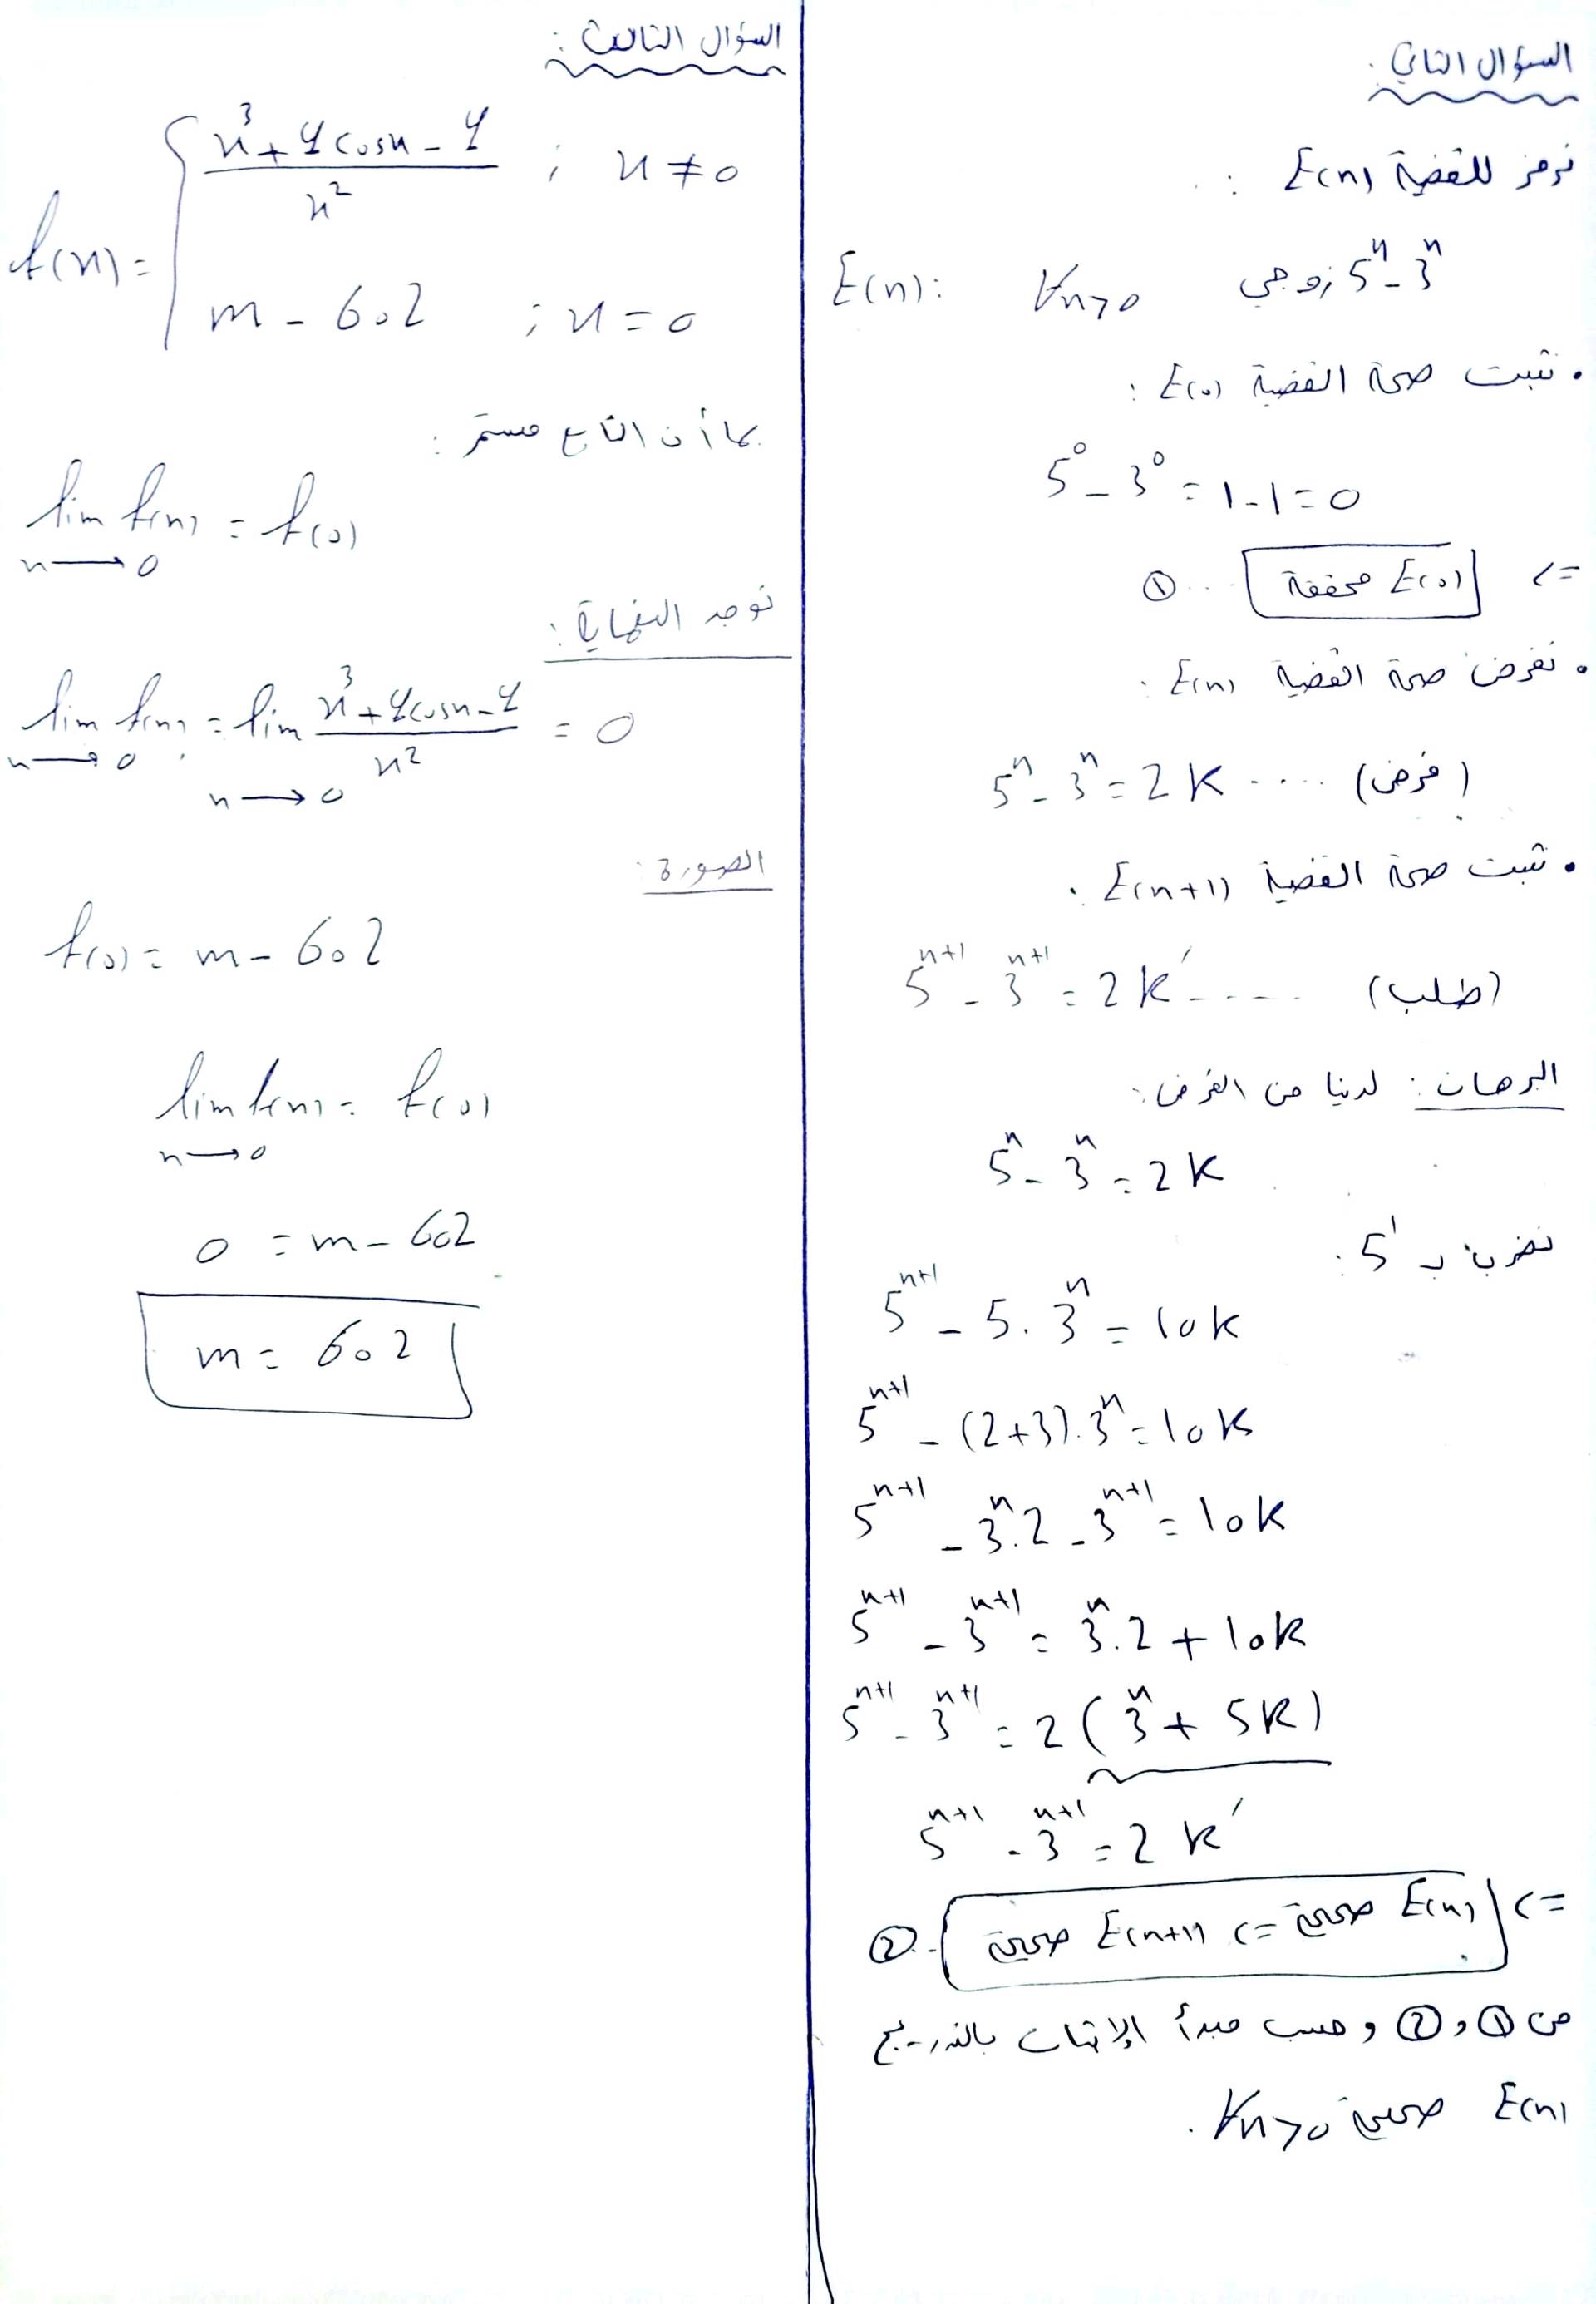 السؤال الثاني:
نرمز للقضية E(n) :
E(n): ∀n≥0 زوجي 5ⁿ - 3ⁿ
• نثبت صحة القضية E(0) :
5⁰ - 3⁰ = 1 - 1 = 0
=> E(0) محققة ... ①
• نفرض صحة القضية E(n) :
5ⁿ - 3ⁿ = 2k .... (فرض)
• نثبت صحة القضية E(n+1) .
5ⁿ⁺¹ - 3ⁿ⁺¹ = 2k′ ..... (طلب)
البرهان : لدينا من الفرض :
5ⁿ - 3ⁿ = 2k
نضرب بـ 5¹ :
5ⁿ⁺¹ - 5.3ⁿ = 10k
5ⁿ⁺¹ - (2+3).3ⁿ = 10k
5ⁿ⁺¹ - 3ⁿ.2 - 3ⁿ⁺¹ = 10k
5ⁿ⁺¹ - 3ⁿ⁺¹ = 3ⁿ.2 + 10k
5ⁿ⁺¹ - 3ⁿ⁺¹ = 2(3ⁿ + 5k)
5ⁿ⁺¹ - 3ⁿ⁺¹ = 2k′
=> E(n) صحيحة => E(n+1) صحيحة .. ②
من ① و ② وحسب مبدأ الإثبات بالتدريج
E(n) صحيحة ∀n≥0 .
السؤال الثالث :
f(x) = { (x³ + 4cosx - 4)/x² ; x ≠ 0
m - 602 ; x = 0
بما أن التابع مستمر :
lim f(x) = f(0)
x → 0
نوجد النهاية :
lim f(x) = lim (x³ + 4cosx - 4)/x² = 0
x → 0 x → 0
الصورة :
f(0) = m - 602
lim f(x) = f(0)
x → 0
0 = m - 602
m = 602